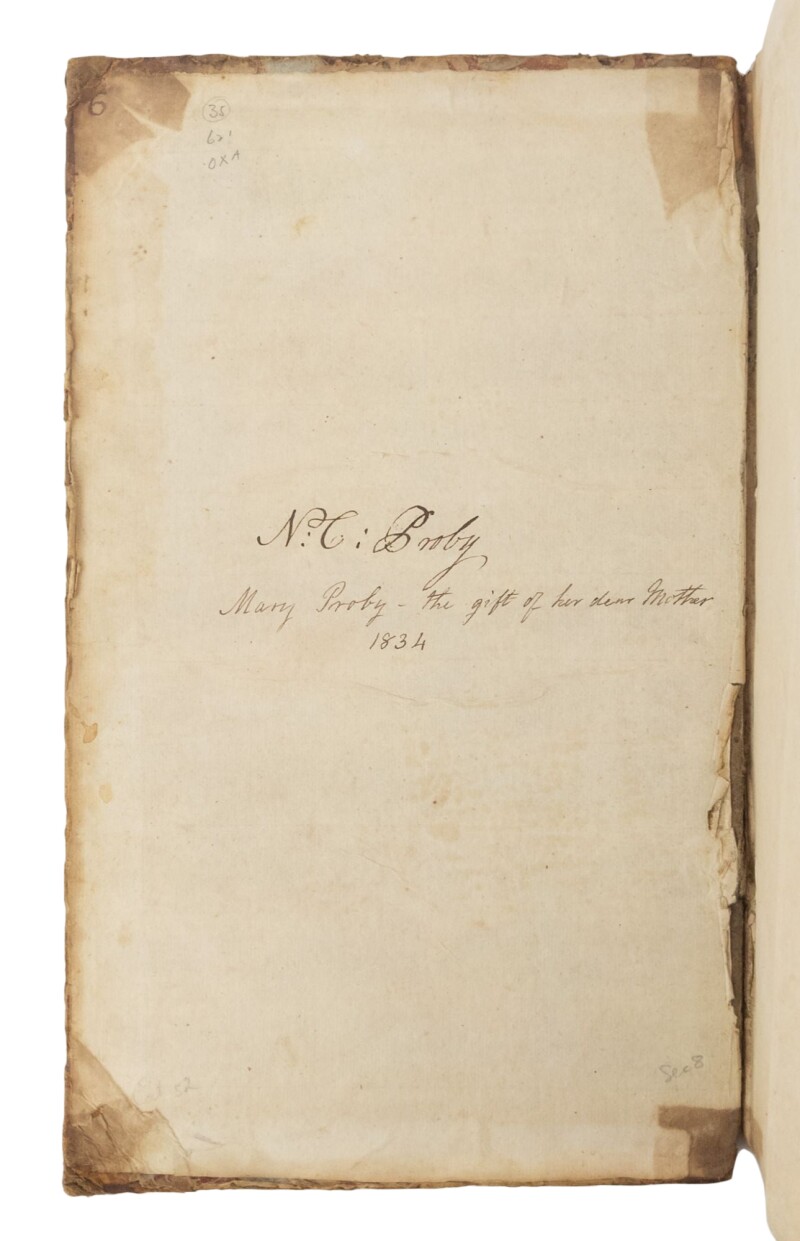 6
35
N: C: Proby
Mary Proby - the gift of her dear Mother
1834